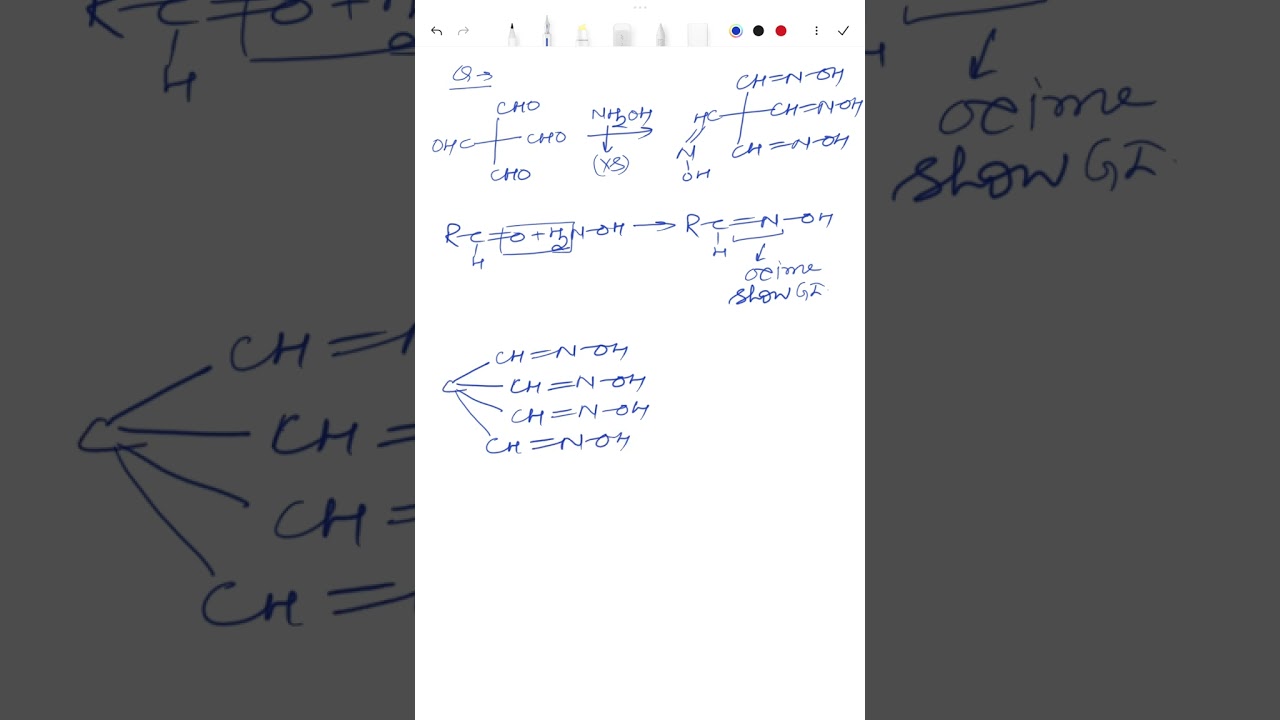 Q→
CHO
OHC CHO
CHO
NH2OH
(XS)
CH=N-OH
HC CH=N-OH
CH=N-OH
N
OH
R-C=O+H2N-OH → R-C=N-OH
H H
oxime
show GI
CH=N-OH
C CH=N-OH
CH=N-OH
CH=N-OH